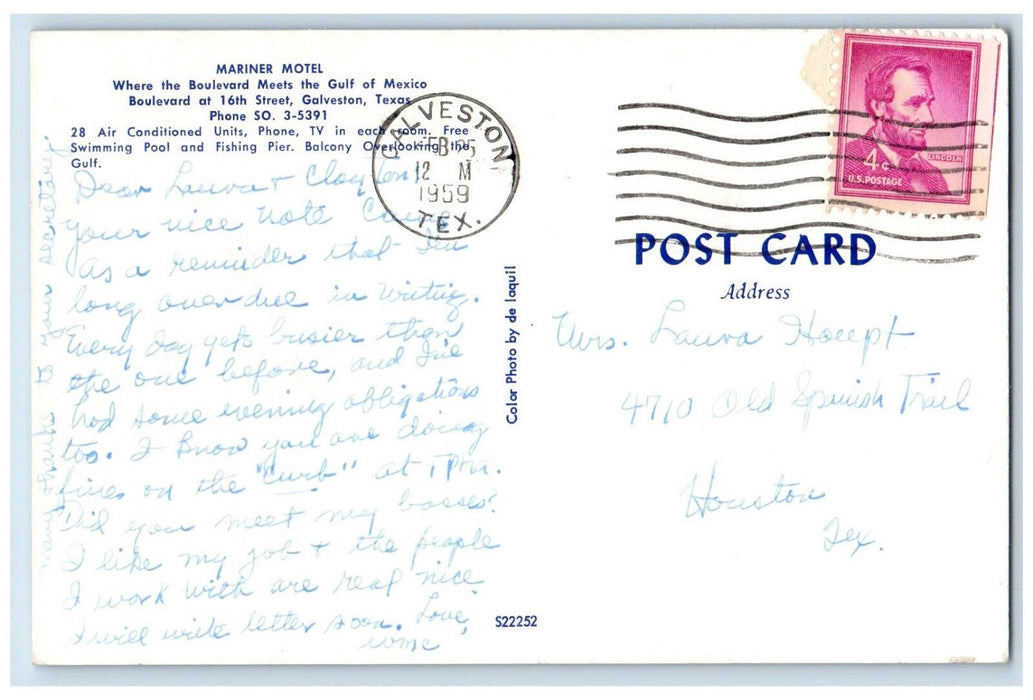 MARINER MOTEL
Where the Boulevard Meets the Gulf of Mexico
Boulevard at 16th Street, Galveston, Texas
Phone SO. 3-5391
28 Air Conditioned Units, Phone, TV in each room. Free
Swimming Pool and Fishing Pier. Balcony Overlooking the
Gulf.
Dear Laura + Clayton!
Your nice note came
as a reminder that I'm
long over due in writing.
Every day gets busier than
the one before, and I've
had some evening obligations
too. I know you are doing
fine on the "curb" at
Did you meet my bosses?
I like my job + the people
I work with are real nice
I will write letter soon. Love,
many thanks to your secretary.
GALVESTON
TEX.
FEB 25
12 M
1959
4¢
LINCOLN
U.S. POSTAGE
POST CARD
Address
Mrs. Laura Houpt
4710 Old Spanish Trail
Houston
Tex.
Color Photo by de Iaquil
S22252